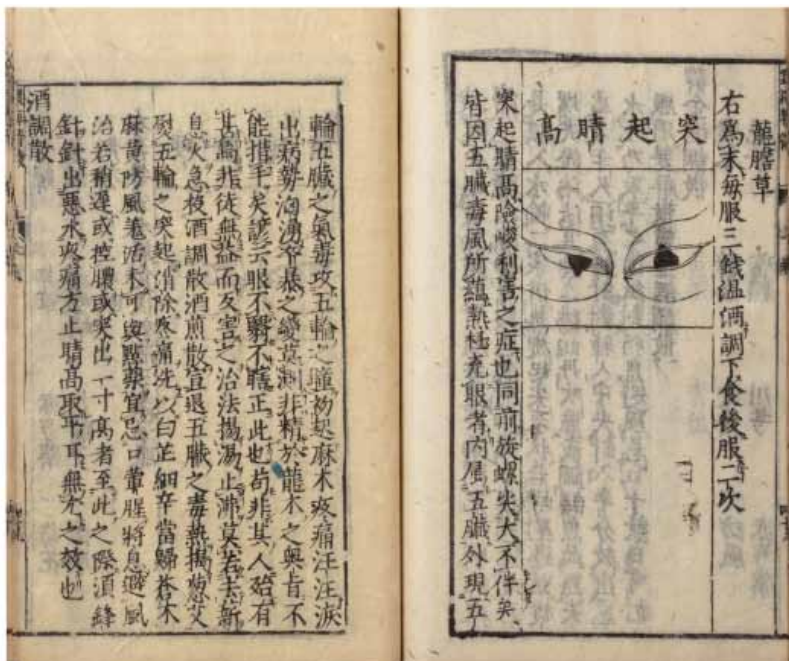 龍膽草
右爲末每服三錢溫酒調下食後服二次
突起睛高
突起睛高險峻利害之症也同前旋螺尖大不伴矣
皆因五臟毒風所蘊熱極充眼者內屬五臟外現五
輪五臟之氣毒攻五輪之瞳初起麻木疼痛汪汪淚
出病勢洶湧卒暴之變莫測非精於龍木之奧旨不
能措手矣諺云眼不翳不瞎正此也苟非其人殆有
甚焉非徒無益而反害之治法揚湯止沸莫若去薪
息火急投酒調散酒煎散宣退五臟之毒熱搗葱艾
熨五輪之突起消除疼痛洗以白芷細辛當歸蒼木
麻黃防風羌活未可與點藥宜忌口葷腥將息避風
治若稍遲或控膿或突出一寸高者至此之際須鋒
針針出惡水疼痛方止睛高取平耳無光之效也
酒調散